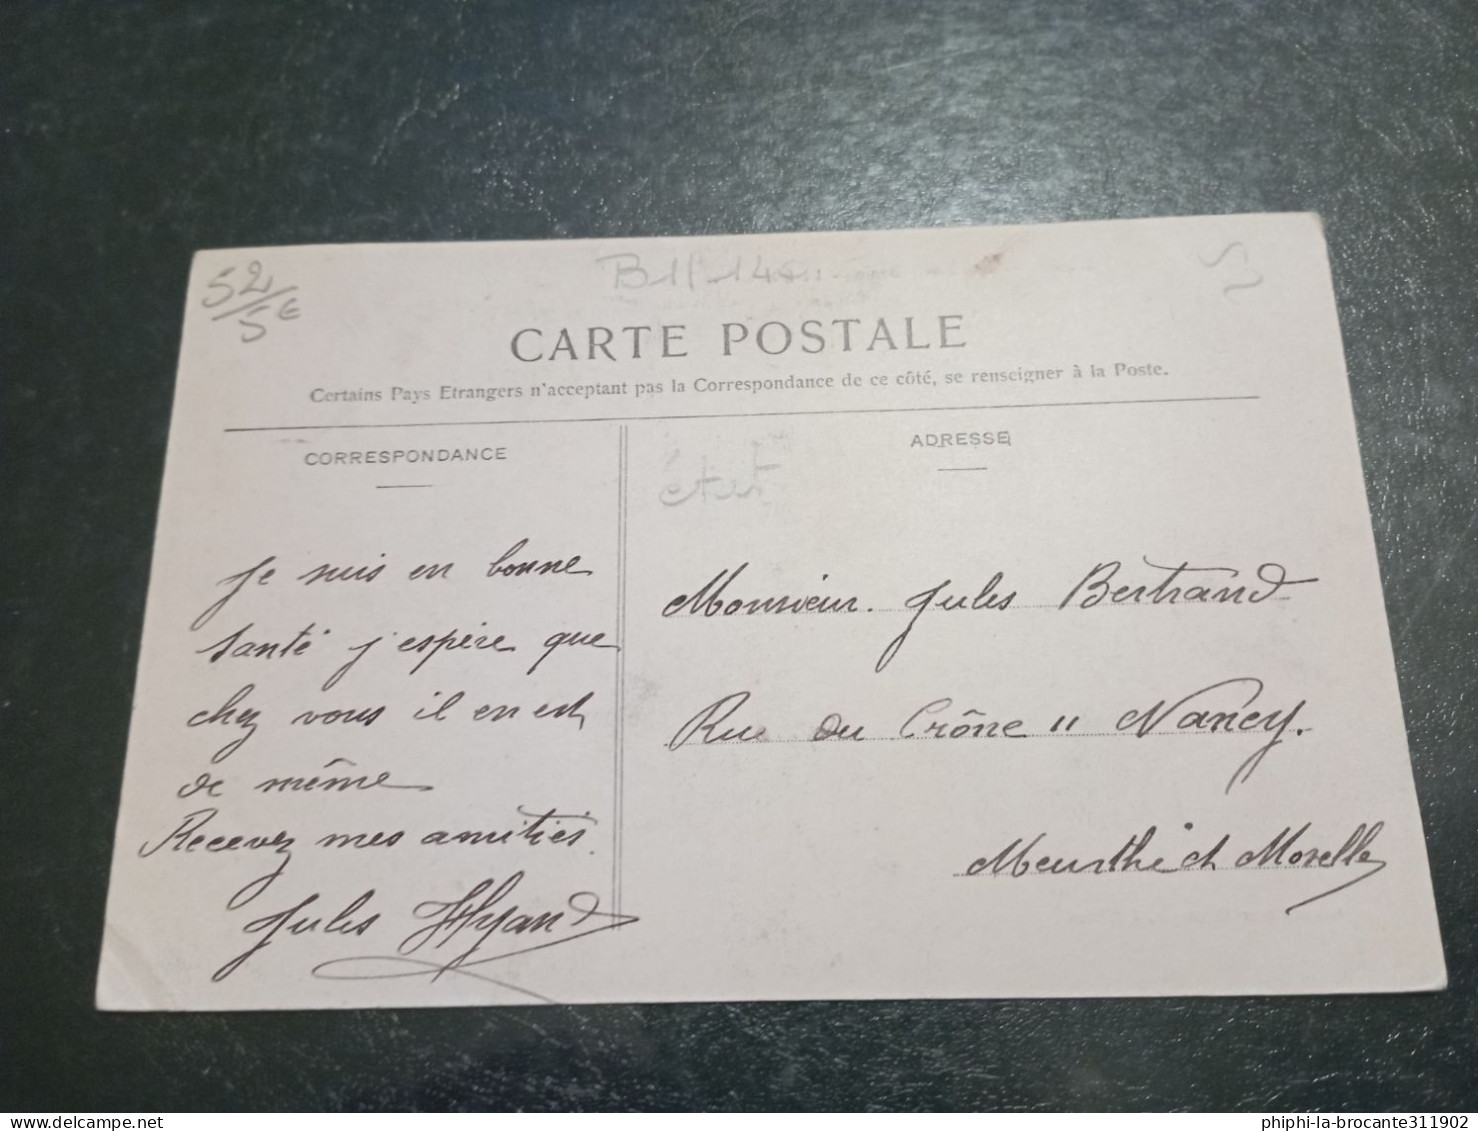 52/5€
CARTE POSTALE
Certains Pays Etrangers n'acceptant pas la Correspondance de ce côté, se renseigner à la Poste.
CORRESPONDANCE
ADRESSE
Je suis en bonne
santé j'espère que
chez vous il en est
de même
Recevez mes amitiés.
Jules
Monsieur. Jules Bertrand
Rue du Crône " Nancy.
Meurthe et Moselle
phiphi-la-brocante311902